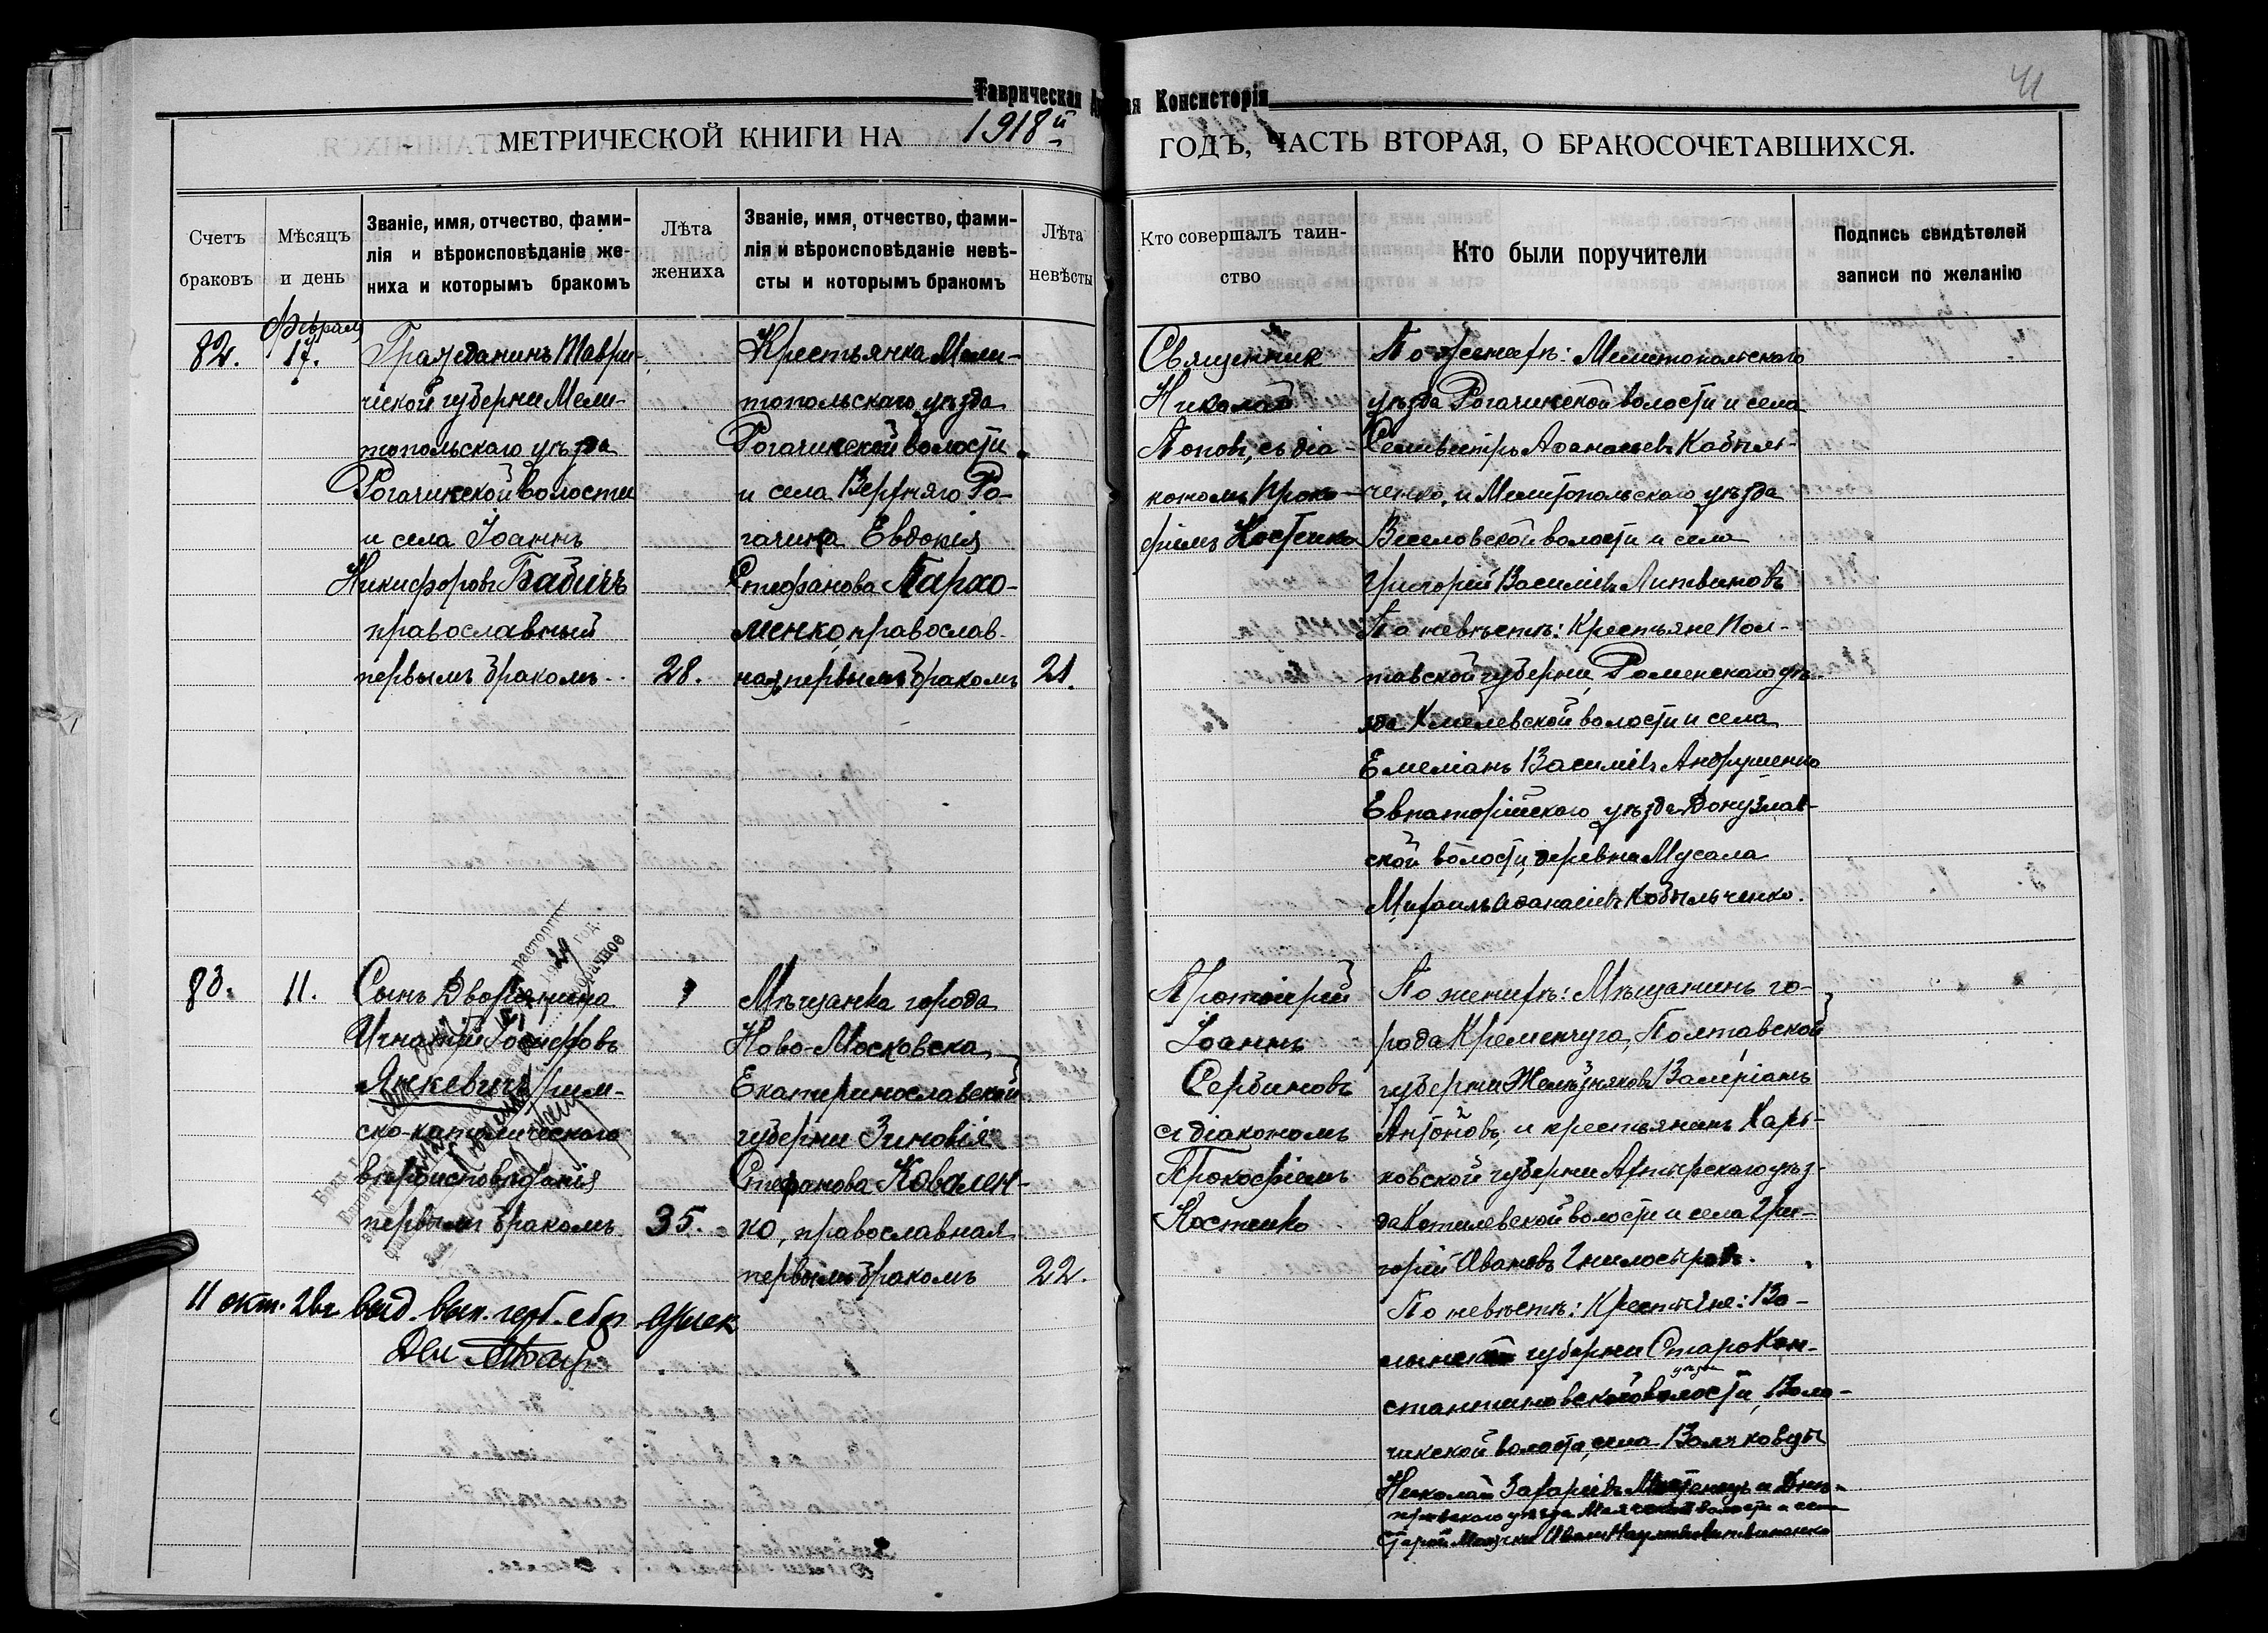 Таврическая
ая Консисторіи
41
МЕТРИЧЕСКОЙ КНИГИ НА 1918й
ГОДЪ, ЧАСТЬ ВТОРАЯ, О БРАКОСОЧЕТАВШИХСЯ.
Счетъ браковъ
Мѣсяцъ и день
Званіе, имя, отчество, фами-
лія и вѣроисповѣданіе же-
ниха и которымъ бракомъ
Лѣта
жениха
Званіе, имя, отчество, фами-
лія и вѣроисповѣданіе невѣ-
сты и которымъ бракомъ
Лѣта
невѣсты
Кто совершалъ таин-
ство
Кто были поручители
Подпись свидѣтелей
записи по желанію
82.
17.
Гражданинъ Таври-
ческой губерни Мели-
топольскаго уѣзда
Рогачикской волости
и села Іоаннъ
Никифоровъ Бабичъ
православный
первымъ бракомъ
28.
Крестьянка Мели-
топольскаго уѣзда
Рогачикской волости
и села Верхняго Ро-
гачика Евдокія
Стефанова Пархо-
менко, православ-
ная, первымъ бракомъ
21.
Священник
Николай
Поповъ, съ діа-
кономъ Проко-
фіемъ Костенко
По женихѣ: Мелитопольскаго
уѣзда Рогачикской волости и села
Селивестръ Афанасіевъ Кобыль-
ченко, и Мелитопольскаго уѣзда
Веселовской волости и села
Григорій Василіевъ Литвиновъ
По невѣстѣ: Крестьяне Пол-
тавской губерни, Роменскаго уѣ-
зда Хмелевской волости и села
Емеліанъ Василіевъ Андрущенко
Евпаторійскаго уѣзда Донузлав-
ской волости, деревни Мусала
Михаилъ Афанасіевъ Кобыльченко.
83.
11.
Сынъ Дворянина
Игнатій Іосифовъ
Янкевичъ, рим-
ско-католическаго
вѣроисповѣданія
первымъ бракомъ
35.
Мѣщанка города
Ново-Московска
Екатеринославской
губерни Зиновія
Стефанова Ковален-
ко, православная
первымъ бракомъ
22.
Протоіерей
Іоаннъ
Сербиновъ
съ діакономъ
Прокофіемъ
Костенко
По женихѣ: Мѣщанинъ го-
рода Кременчуга, Полтавской
губерни Желѣзняковъ Валеріанъ
Антоновъ, и крестьянинъ Харь-
ковской губерни Ахтырскаго уѣз-
да Котелевской волости и села Гри-
горій Ивановъ Гнилосыръ.
По невѣстѣ: Крестьяне: Во-
лынской губерни Старокон-
стантиновскаго уѣзда
волости, села
Николай Захаріевъ
11 окт. 28г выд. вып.